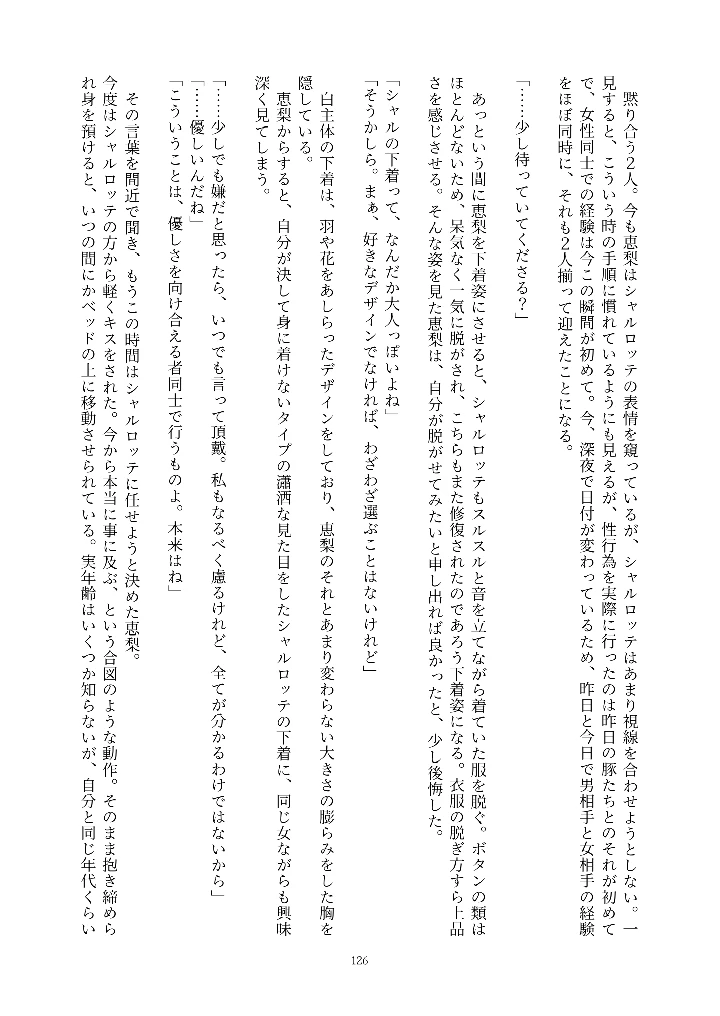 黙り合う２人。今も恵梨はシャルロッテの表情を窺っているが、シャルロッテはあまり視線を合わせようとしない。一
見すると、こういう時の手順に慣れているようにも見えるが、性行為を実際に行ったのは昨日の豚たちとのそれが初めて
で、女性同士での経験は今この瞬間が初めて。今、深夜で日付が変わっているため、昨日と今日で男相手と女相手の経験
をほぼ同時に、それも２人揃って迎えたことになる。
「……少し待っていてくださる？」
あっという間に恵梨を下着姿にさせると、シャルロッテもスルスルと音を立てながら着ていた服を脱ぐ。ボタンの類は
ほとんどないため、呆気なく一気に脱がされ、こちらもまた修復されたのであろう下着姿になる。衣服の脱ぎ方すら上品
さを感じさせる。そんな姿を見た恵梨は、自分が脱がせてみたいと申し出れば良かったと、少し後悔した。
「シャルの下着って、なんだか大人っぽいよね」
「そうかしら。まぁ、好きなデザインでなければ、わざわざ選ぶことはないけれど」
白主体の下着は、羽や花をあしらったデザインをしており、恵梨のそれとあまり変わらない大きさの膨らみをした胸を
隠している。
恵梨からすると、自分が決して身に着けないタイプの瀟洒な見た目をしたシャルロッテの下着に、同じ女ながらも興味
深く見てしまう。
「……少しでも嫌だと思ったら、いつでも言って頂戴。私もなるべく慮るけれど、全てが分かるわけではないから」
「……優しいんだね」
「こういうことは、優しさを向け合える者同士で行うものよ。本来はね」
その言葉を間近で聞き、もうこの時間はシャルロッテに任せようと決めた恵梨。
今度はシャルロッテの方から軽くキスをされた。今から本当に事に及ぶ、という合図のような動作。そのまま抱き締めら
れ身を預けると、いつの間にかベッドの上に移動させられている。実年齢はいくつか知らないが、自分と同じ年代くらい
126